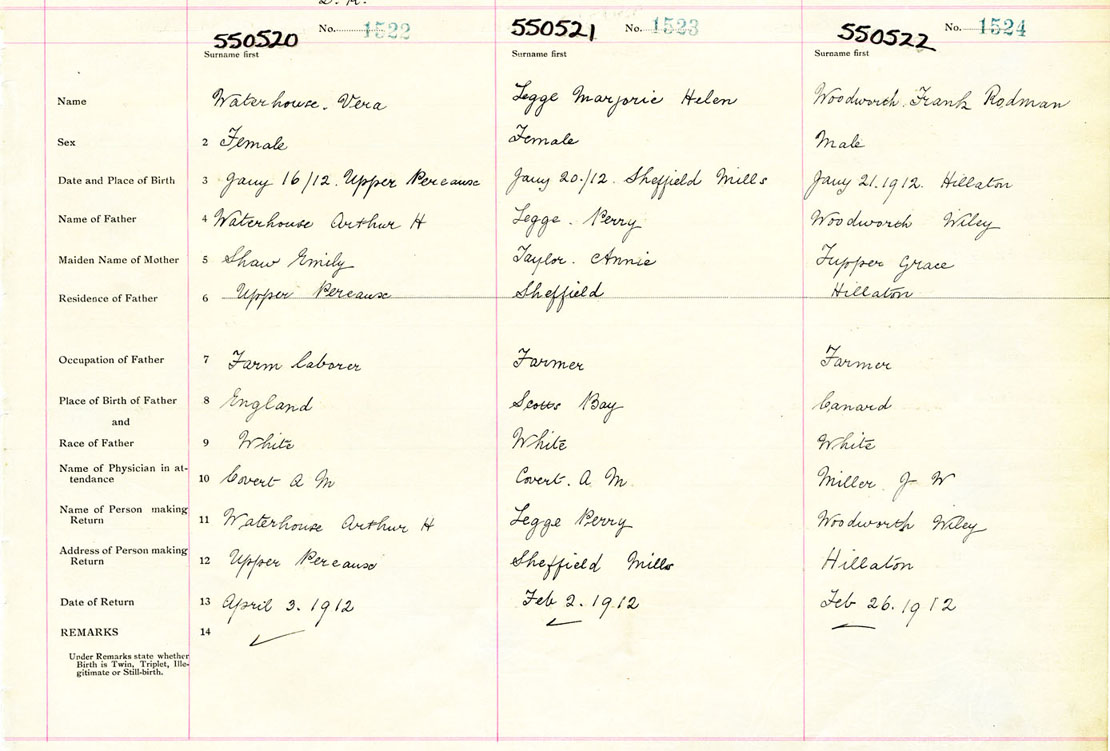 No. 1522 No. 1523 No. 1524
550520 550521 550522
Surname first Surname first Surname first
Name Waterhouse. Vera Legge Marjorie Helen Woodworth. Frank Rodman
Sex 2 Female Female Male
Date and Place of Birth 3 Jany 16/12. Upper Pereaux Jany 20./12. Sheffield Mills Jany 21.1912. Hillaton
Name of Father 4 Waterhouse Arthur H Legge. Perry Woodworth Wiley
Maiden Name of Mother 5 Shaw Emily Taylor. Annie Tupper Grace
Residence of Father 6 Upper Pereaux Sheffield Hillaton
Occupation of Father 7 Farm laborer Farmer Farmer
Place of Birth of Father 8 England Scotts Bay Canard
and
Race of Father 9 White White White
Name of Physician in at-
tendance 10 Covert A M Covert. A. M. Miller J W
Name of Person making
Return 11 Waterhouse Arthur H Legge Perry Woodworth Wiley
Address of Person making
Return 12 Upper Pereaux Sheffield Mills Hillaton
Date of Return 13 April 3. 1912 Feb 2. 1912 Feb 26. 1912
REMARKS 14
Under Remarks state whether
Birth is Twin, Triplet, Ille-
gitimate or Still-birth.